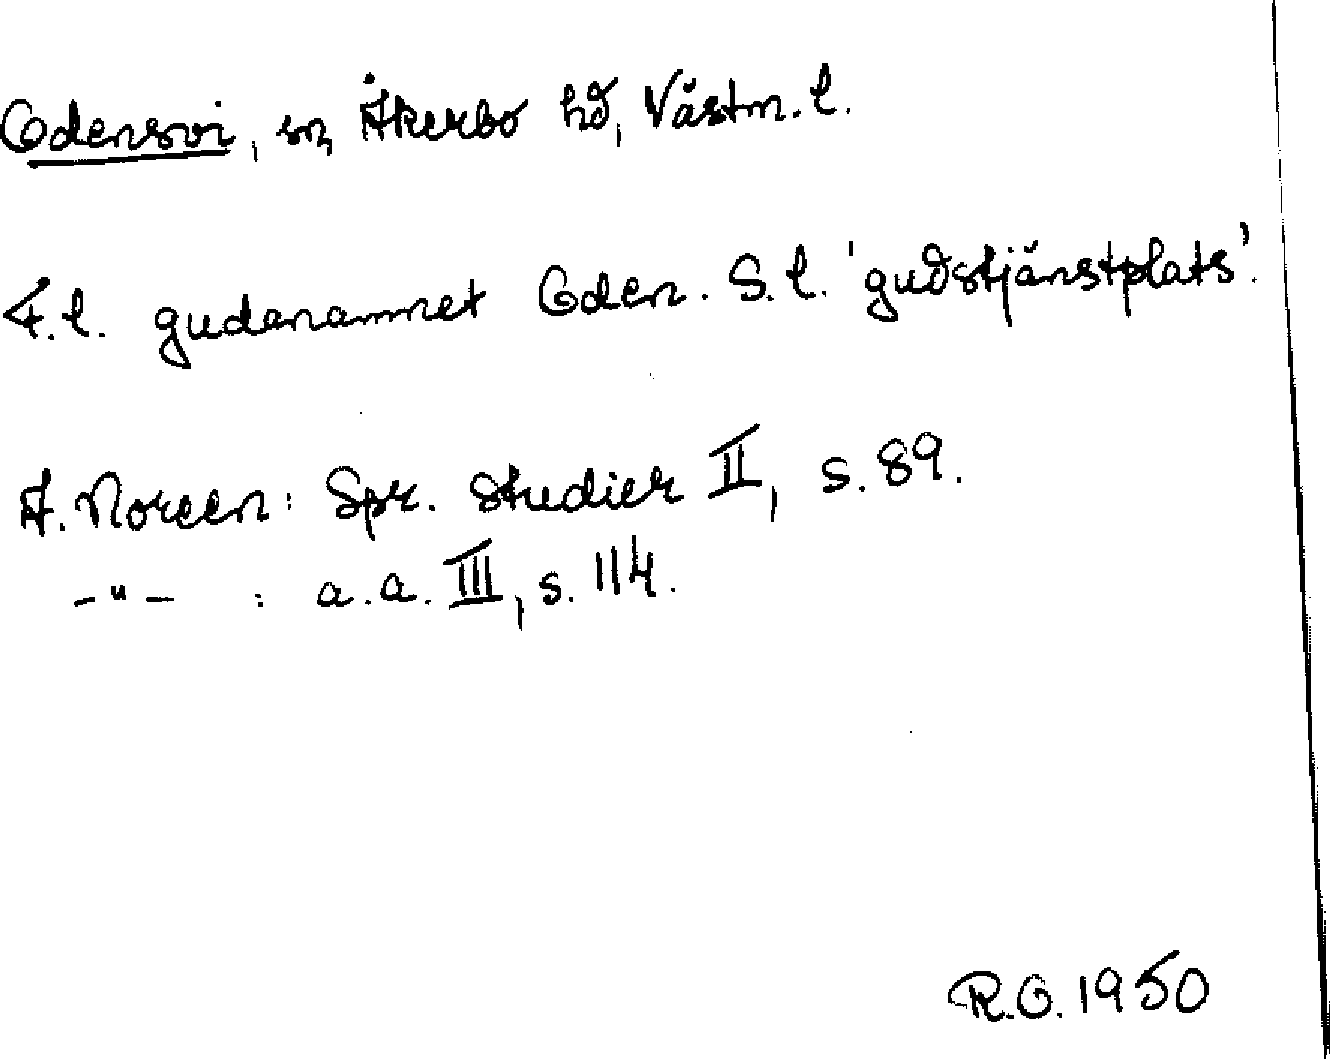 Odensvi, sn, Åkerbo hd, Västm. l.
F.l. gudanamnet Oden. S.l. 'gudstjänstplats'.
A. Noreen: Spr. studier II, s. 89.
-"- : a.a. III, s. 114.
R.O. 1950